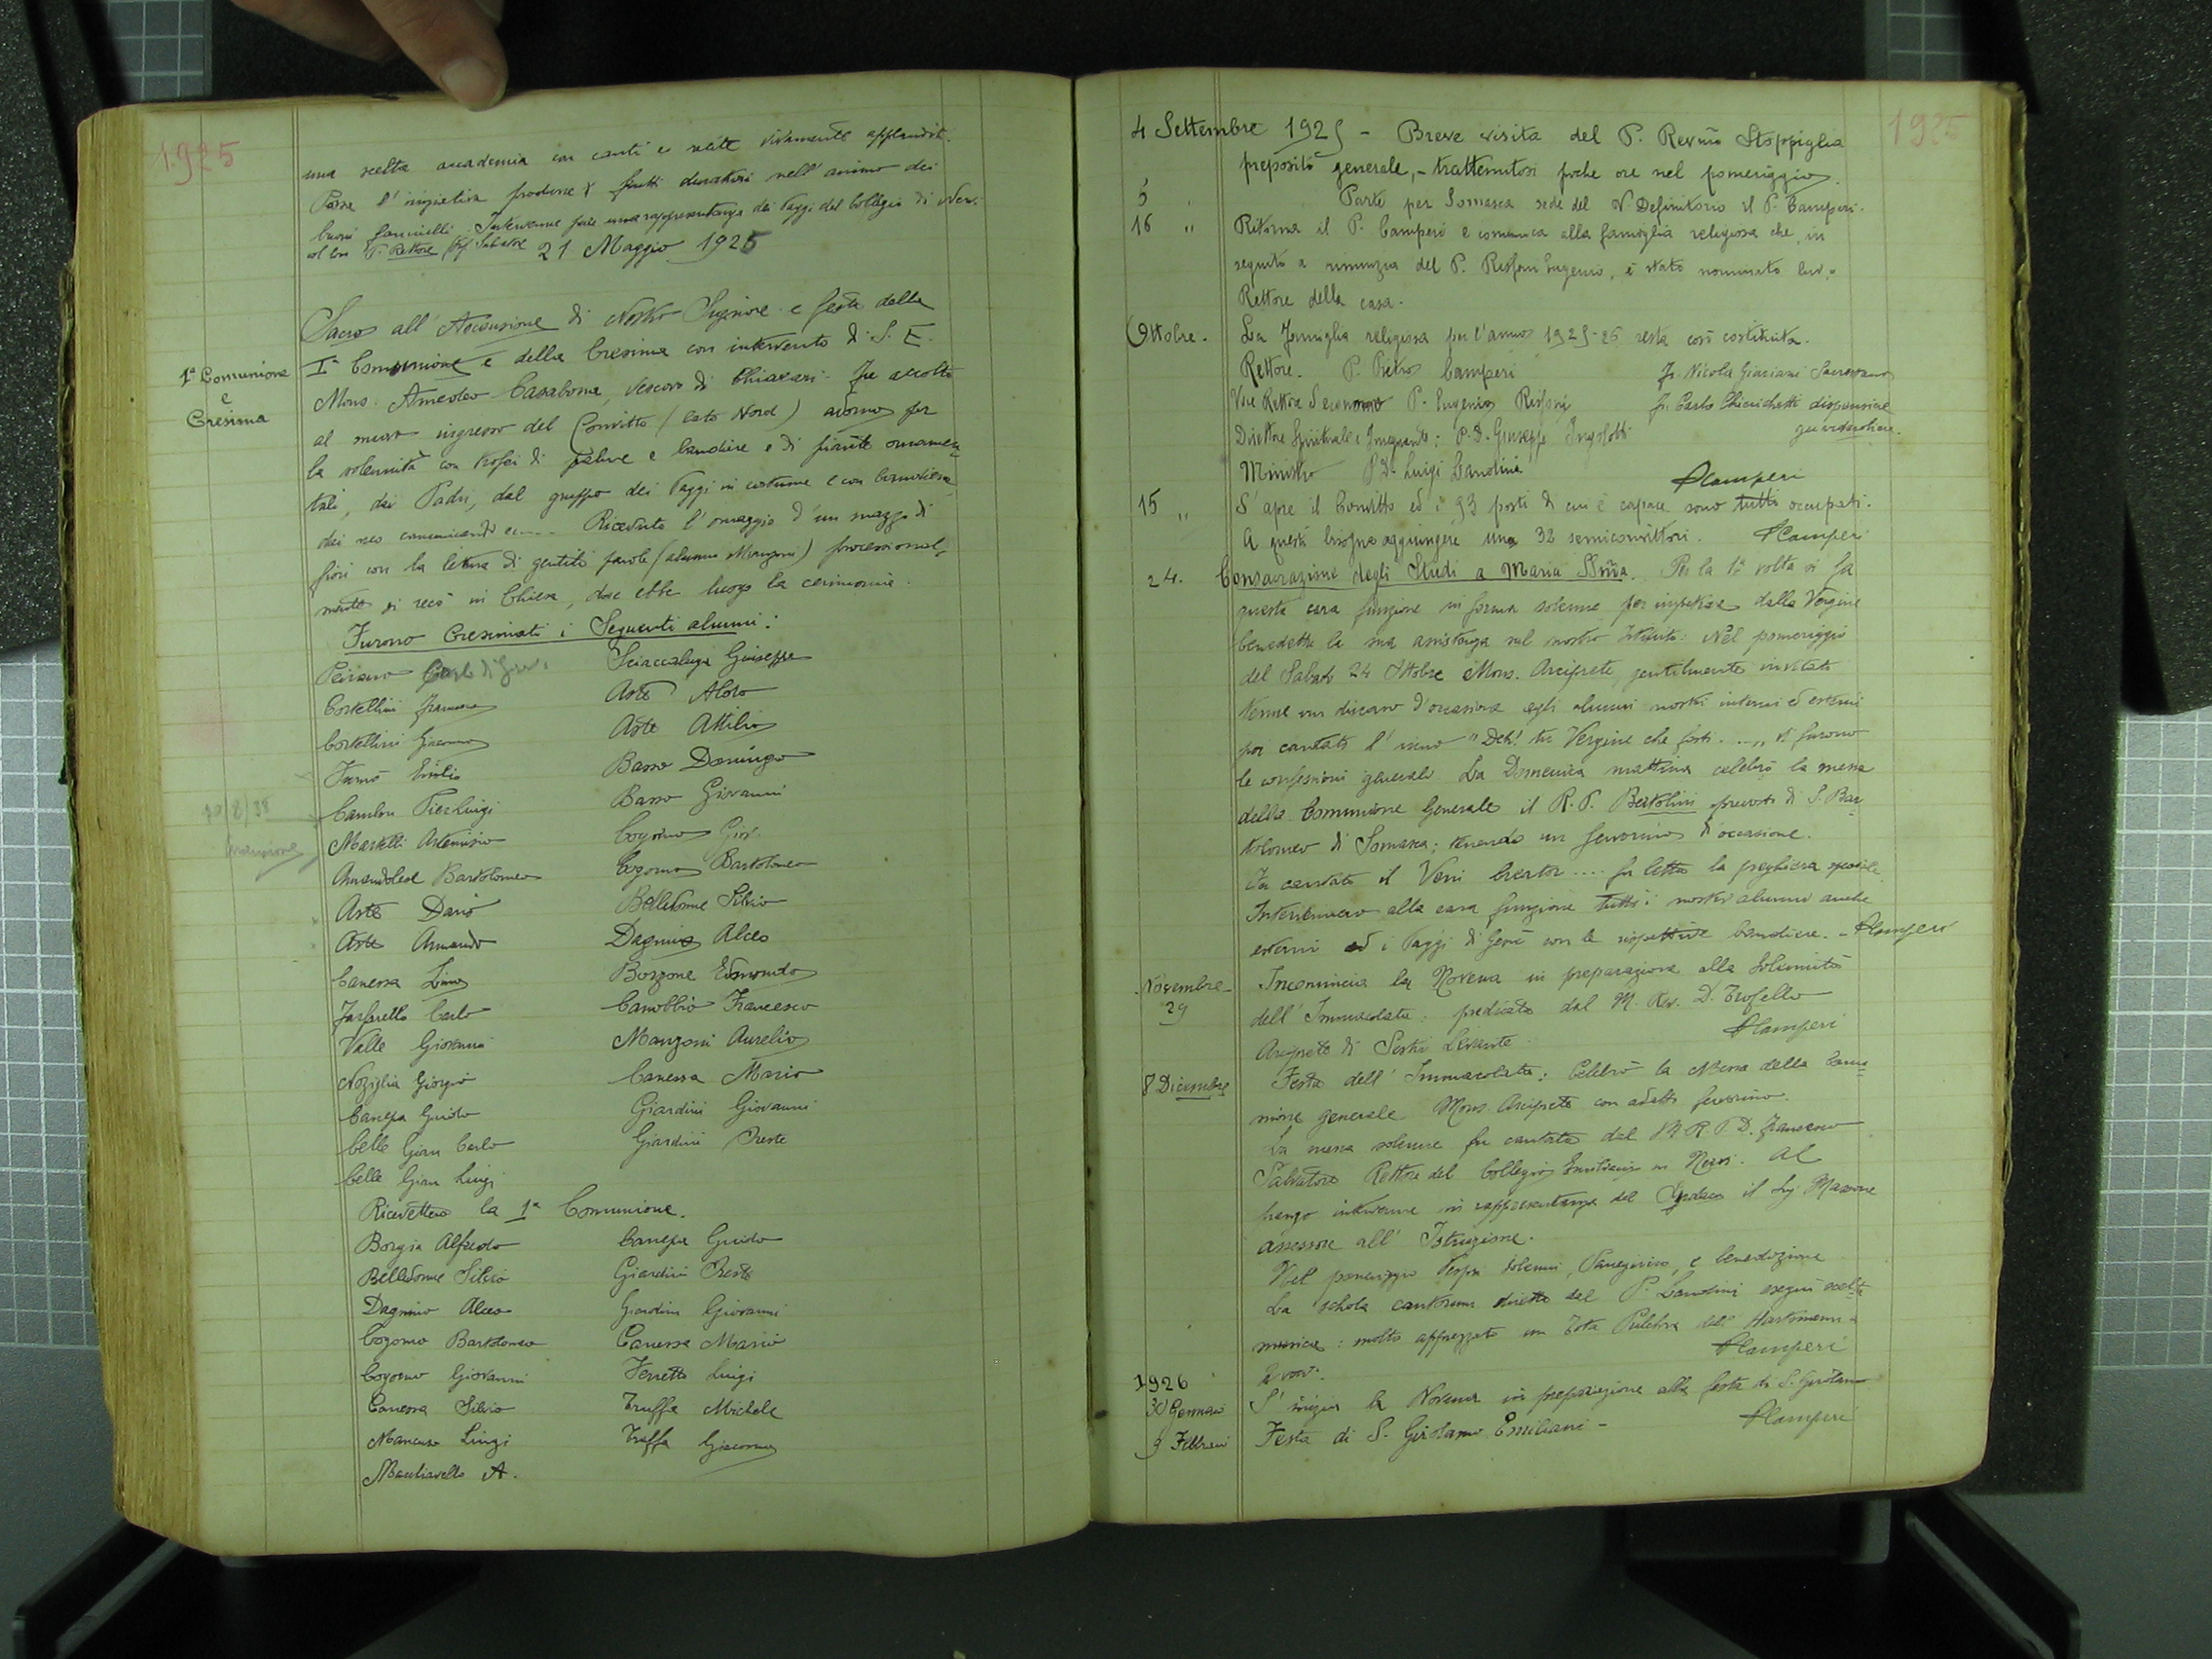 1925
una scelta accademia con canti e recite vivamente applaudit.
Possa l'iniziativa produrre frutti duraturi nell'animo dei
buoni fanciulli. Intervenne pure una rappresentanza dei Paggi del Collegio di Nervi
col loro P. Rettore Salvatore
21 Maggio 1925
Sacro all'Ascensione di Nostro Signore e festa della
1ª Comunione
e
Cresima
Iª Comunione e della Cresima con intervento di S. E.
Mons. Amedeo Casabona, Vescovo di Chiavari. Fu accolto
al nuovo ingresso del Convitto (lato Nord) adorno per
la solennità con trofei di palme e bandiere e di piante ornamen-
tali, dai Padri, dal gruppo dei Paggi in costume e con bandiera
dai neo comunicandi ecc... Ricevuto l'omaggio d'un mazzo di
fiori con la lettura di gentili parole (alunno Manzoni) processional-
mente si recò in Chiesa, dove ebbe luogo la cerimonia.
Furono Cresimati i Seguenti alunni:
Peirano Carlo di Gio. Sciaccaluga Giuseppe
Costellini Francesco Aste Aldo
Costellini Giacomo Aste Attilio
Fumo Emilio Basso Domingo
Pier Luigi Basso Giovanni
20/8/38
Martelli Artemisio Cogorno Giov.
Amandolese Bartolomeo Cogorno Bartolomeo
Aste Dario Bellidome Silvio
Aste Armando Dagnino Alceo
Canessa Lino Bozzone Edmondo
Carlo Canobbio Francesco
Valle Giovanni Manzoni Aurelio
Noziglia Giorgio Canessa Mario
Canepa Guido Giardini Giovanni
Celle Gian Carlo Giardini Oreste
Celle Gian Luigi
Ricevettero la 1ª Comunione.
Borgia Alfredo Canepa Guido
Bellidome Silvio Giardini Oreste
Dagnino Alceo Giardini Giovanni
Cogorno Bartolomeo Canessa Mario
Cogorno Giovanni Ferretto Luigi
Canessa Silvio Truffa Michele
Mancuso Luigi Truffa Giacomo
Machiavello A.
1925
4 Settembre 1925 - Breve visita del P. Revmo Stoppiglia
preposito generale, - trattenutosi poche ore nel pomeriggio.
5 " Parte per Somasca sede del V. Definitorio il P. Camperi.
16 " Ritorna il P. Camperi e comunica alla famiglia religiosa che, in
seguito a rinunzia del P. Risponi Eugenio, è stato nominato lui
Rettore della casa.
Ottobre. La famiglia religiosa per l'anno 1925-26 resta così costituita.
Rettore. P. Pietro Camperi Fr. Nicola Graziani Sacrestano
Vice Rettore Economo P. Eugenio Risponi Fr. Carlo Chiericchetti dispensiere
guardarobiere.
Direttore Spirituale e Insegnante: P. D. Giuseppe Ingolotti
Ministro P. D. Luigi Landini
PCamperi
15 " S'apre il Convitto ed i 93 posti di cui è capace sono tutti occupati.
A questi bisogna aggiungere una 32 semiconvittori. PCamperi
24. Consacrazione degli Studi a Maria SSma. Per la 1ª volta si fa
questa cara funzione in forma solenne per impetrare dalla Vergine
benedetta la sua assistenza sul nostro Istituto: Nel pomeriggio
del Sabato 24 Ottobre Mons. Arciprete gentilmente invitato
tenne un discorso d'occasione agli alunni nostri interni ed esterni
poi cantato l'inno "Deh! tu Vergine che fosti..." vi furono
le confessioni generali. La Domenica mattina celebrò la messa
della Comunione Generale il R. P. Bertolini prevosto di S. Bar-
tolomeo di Somasca; tenendo un fervorino d'occasione.
Fu cantato il Veni Creator .... fu letta la preghiera speciale.
Intervennero alla cara funzione tutti i nostri alunni anche
esterni ed i Paggi di Gesù con le rispettive bandiere. - PCamperi
Novembre
29 Incomincia la Novena in preparazione alla Solennità
dell'Immacolata: predicata dal M. Rev. D. Trofello
Arciprete di Sestri Levante. PCamperi
8 Dicembre Festa dell'Immacolata: Celebrò la Messa della Comu-
nione generale Mons. Arciprete con adatto fervorino.
La messa solenne fu cantata dal M. R. P. D. Francesco
Salvatore Rettore del Collegio Emiliani in Nervi. Al
pranzo intervenne in rappresentanza del Sindaco il Sig. Massone
assessore all'Istruzione.
Nel pomeriggio Vespri solenni, Panegirico, e benedizione
La schola cantorum diretta dal P. Landini eseguì scelta
musica: molto apprezzato un Tota Pulchra dell'Hartmann a
2 voci. PCamperi
1926
30 Gennaio S'inizia la Novena in preparazione alla festa di S. Girolamo
9 Febbraio Festa di S. Girolamo Emiliani - PCamperi